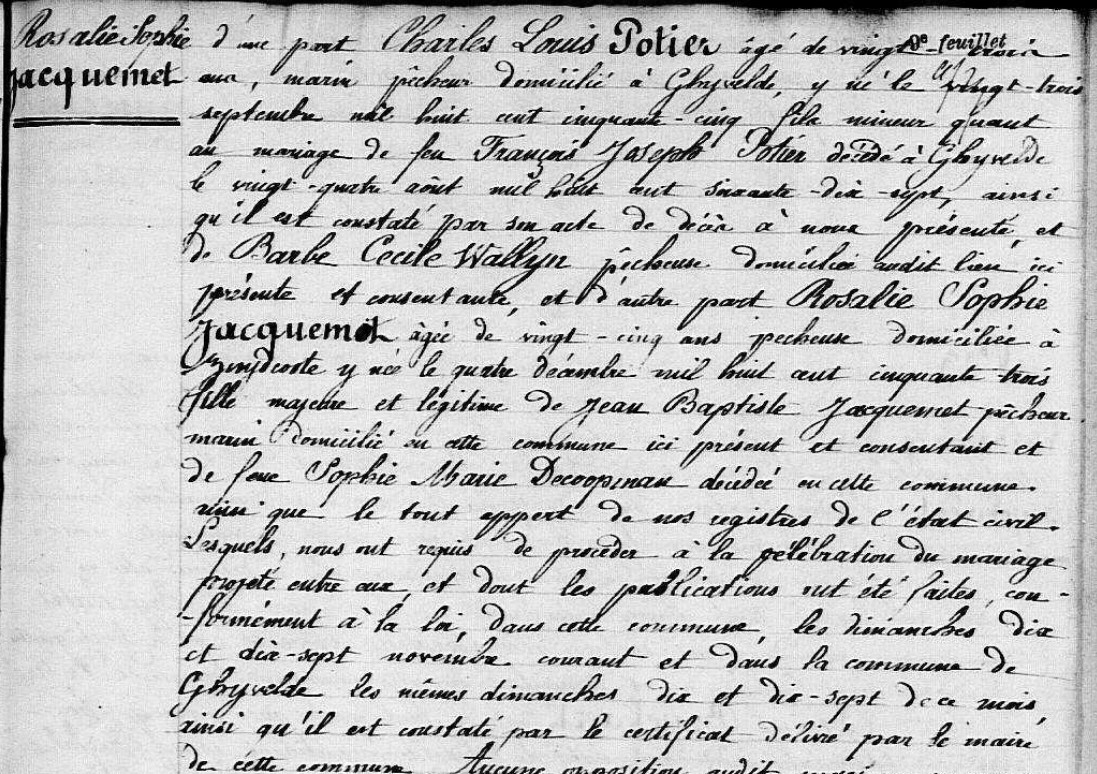 Rosalie Sophie
Jacquemet
9e feuillet
d'une part Charles Louis Potier âgé de vingt-trois
ans, marin pêcheur domicilié à Ghyvelde, y né le vingt-trois
septembre mil huit cent cinquante-cinq fils mineur quant
au mariage de feu François Joseph Potier décédé à Ghyvelde
le vingt-quatre août mil huit cent soixante-dix-sept, ainsi
qu'il est constaté par son acte de décès à nous présenté, et
de Barbe Cecile Wallyn pêcheuse domiciliée audit lieu ici
présente et consentante, et d'autre part Rosalie Sophie
Jacquemet âgée de vingt-cinq ans pecheuse domiciliée à
Zuydcoote y née le quatre décembre mil huit cent cinquante-trois
fille majeure et légitime de Jean Baptiste Jacquemet pêcheur
marin domicilié en cette commune ici présent et consentant et
de feue Sophie Marie Decoopman décédée en cette commune.
ainsi que le tout appert de nos registres de l'état civil.
Lesquels, nous ont requis de procéder à la célébration du mariage
projeté entre eux, et dont les publications ont été faites, con-
-formément à la loi, dans cette commune, les dimanches dix
et dix-sept novembre courant et dans la commune de
Ghyvelde les mêmes dimanches dix et dix-sept de ce mois,
ainsi qu'il est constaté par le certificat délivré par le maire
de cette commune. Aucune opposition audit